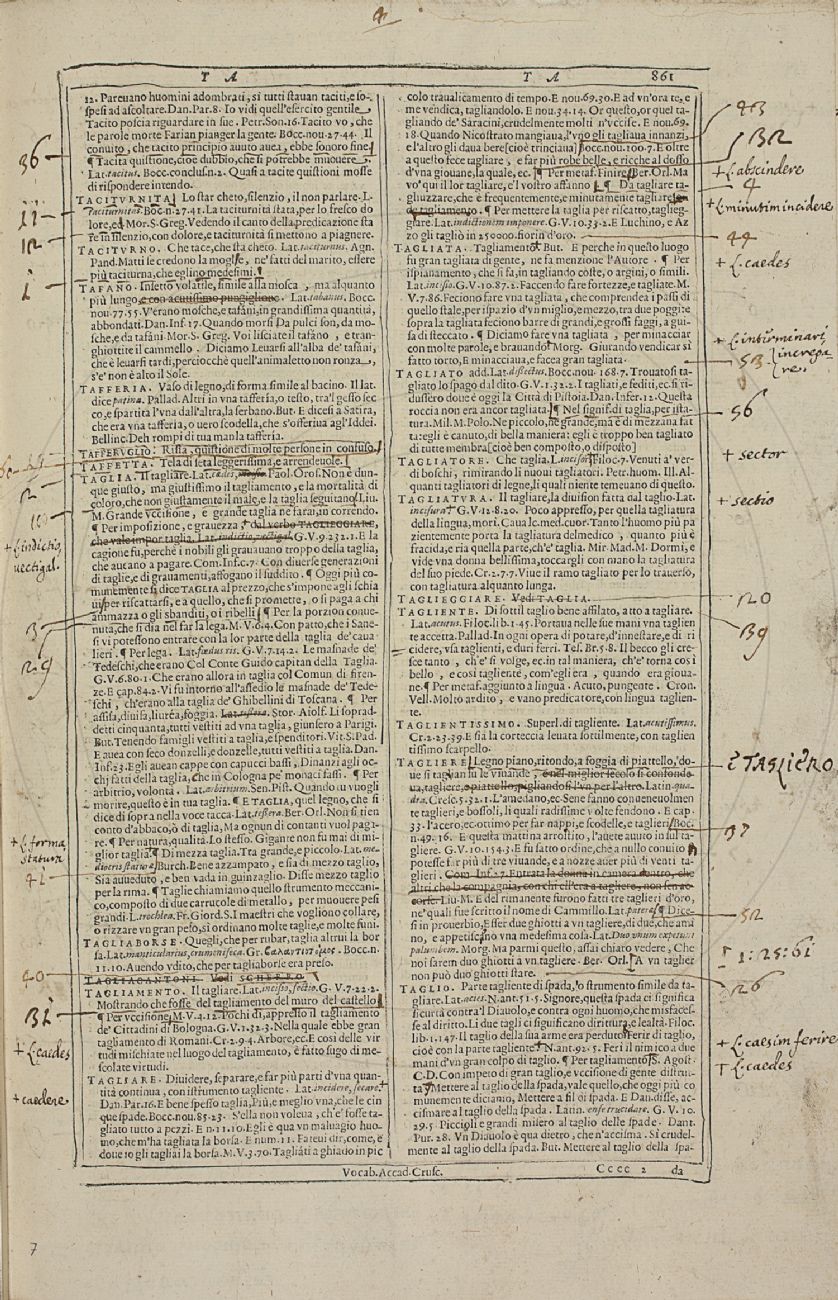 T A
T A
861
12. Pareuano huomini adombrati, sì tutti stauan taciti, e so-
spesi ad ascoltare. Dan. Par. 8. Io vidi quell'esercito gentile,
Tacito poscia riguardare in sue. Petr. Son. 16. Tacito vo, che
le parole morte Farian pianger la gente. Bocc. nou. 27. 44. Il
conuito, che tacito principio auuto auea, ebbe sonoro fine.
¶ Tacita quistione, cioe dubbio, che si potrebbe muouere.
Lat. tacitus. Bocc. conclus. n. 2. Quasi a tacite quistioni mosse
di rispondere intendo.
TACITURNITA. Lo star cheto, silenzio, il non parlare. L.
Taciturnitas. Boc. n. 27. 41. La taciturnità stata, per lo fresco do
lore, ed Mor. S. Greg. Vedendo il canto della predicazione sta
re in silenzio, con dolore, e taciturnità si mettono a piagnere.
TACITURNO. Che tace, che sta cheto. Lat. taciturnus. Agn.
Pand. Matti se credono la moglie, ne' fatti del marito, essere
più taciturna, che eglino medesimi.
TAFANO. Insetto volatile, simile alla mosca, ma alquanto
più lungo, e con acutissimo pungiglione. Lat. tabanus. Bocc.
nou. 77. 55. V'erano mosche, e tafani, in grandissima quantità,
abbondati. Dan. Inf. 17. Quando morsi Da pulci son, da mo-
sche, e da tafani. Mor. S. Greg. Voi lisciate il tafàno, e tran-
ghiottite il cammello. Diciamo Leuarsi all'alba de' tafàni,
che è leuarsi tardi, perciocchè quell'animaletto non ronza,
s'e' non è alto il Sole.
TAFFERIA. Vaso di legno, di forma simile al bacino. Il lat.
dice patina. Pallad. Altri in vna tafferia, o testo, tra'l gesso sec
co, e spartita l'vna dall'altra, la serbano. But. E dicesi a Satira,
che era vna tafferia, o uero scodella, che s'offeriua agl'Iddei.
Bellinc. Deh rompi di tua man la tafferia.
TAFFERVGLIO. Rissa, quistione di molte persone in confuso.
TAFFETTA. Tela di seta leggerissima, e arrendeuole.
TAGLIA. Il tagliare. Lat. Paol. Oros. Non è dun-
que giusto, ma giustissimo il tagliamento, e la mortalità di
coloro, che non giustamente il male, e la taglia seguitano. Liu.
M. Grande vccisione, e grande taglia ne farai, in correndo.
¶ Per imposizione, e grauezza dal verbo TAGLIEGGIARE,
che vale impor taglia. Lat. indictio, vectigal. G. V. 9. 232. 1. E la
cagione fu, perchè i nobili gli grauauano troppo della taglia,
che aueano a pagare. Com. Inf. c. 7. Con diuerse generazioni
di taglie, e di grauamenti, affogano il suddito. ¶ Oggi più co-
munemente si dice TAGLIA al prezzo, che s'impone agli schia
ui, per riscattarsi, e a quello, che si promette, o si paga a chi
ammazza o gli sbanditi, o i ribelli. ¶ Per la porzion conue-
nuta, che si dia nel far la lega. M. V. 6. 4. Con patto, che i Sane-
si vi potessono entrare con la lor parte della taglia de' caua-
lieri. ¶ Per lega. Lat. fœdus ris. G. V. 7. 14. 2. Le masnade de'
Tedeschi, che erano Col Conte Guido capitan della Taglia.
G. V. 6. 80. 1. Che erano allora in taglia col Comun di Firen-
ze. E cap. 84. 2. Vi fu intorno all'assedio le masnade de' Tede-
schi, ch'erano alla taglia de' Ghibellini di Toscana. ¶ Per
assisa, diuisa, liurèa, foggia. Lat. tessera. Stor. Aiolf. Li soprad-
detti cinquanta, tutti vestiti ad vna taglia, giunsero a Parigi.
But. Tenendo famigli vestiti a taglia, e spenditori. Vit. S. Pad.
E auea con seco donzelli, e donzelle, tutti vestiti a taglia. Dan.
Inf. 23. Egli auean cappe con capucci bassi, Dinanzi agli oc-
chi fatti della taglia, che in Cologna pe' monaci fassi. ¶ Per
arbitrio, volontà. Lat. arbitrium. Sen. Pist. Quando tu vuogli
morire, questo è in tua taglia. ¶ E TAGLIA, quel legno, che si
dice di sopra nella voce tacca. Lat. tessera. Ber. Orl. Non si tien
conto d'abbaco, ò di taglia, Ma ognun di contanti vuol paga-
re. ¶ Per natura, qualità. Lo stesso. Gigante non fu mai di mi-
glior taglia. ¶ Di mezza taglia. Tra grande, e piccolo. Lat. me-
diocris staturæ. Burch. Bene azzampato, e sia di mezzo taglio,
Sia auueduto, e ben vada in guinzaglio. Disse mezzo taglio
per la rima. ¶ Taglie chiamiamo quello strumento meccani-
co, composto di due carrucole di metallo, per muouere pesi
grandi. L. trochlea. Fr. Giord. S. I maestri che vogliono collare,
o rizzare vn gran peso, si ordinano molte taglie, e molte funi.
TAGLIABORSE. Quegli, che per rubar, taglia altrui la bor
sa. Lat. manticularius, crumeniseca. Gr. Bocc. n.
11. 10. Auendo vdito, che per tagliaborse era preso.
TAGLIACANTONI. Vedi SCHERRO.
TAGLIAMENTO. Il tagliare. Lat. incisio, sectio. G. V. 7. 22. 2.
Mostrando che fosse del tagliamento del muro del castello
¶ Per vccisione, M. V. 4. 12. Pochi dì, appresso il tagliamento
de' Cittadini di Bologna. G. V. 1. 32. 3. Nella quale ebbe gran
tagliamento di Romani. Cr. 2. 9. 4. Arbore, ec. E così delle vir
tudi mischiate nel luogo del tagliamento, è fatto sugo di me-
scolate virtudi.
TAGLIARE. Diuidere, separare, e far più parti d'vna quan-
tità continua, con istrumento tagliente. Lat. incidere, secare.
Dan. Par. 16. E bene spesso taglia, Più, e meglio vna, che le cin
que spade. Bocc. nou. 85. 23. S'ella non voleua, ch'e' fosse ta-
gliato tutto a pezzi. E n. 11. 10. Egli è qua vn maluagio huo-
mo, che m'ha tagliata la borsa. E num. 11. Fateui dir, come, e
doue io gli tagliai la borsa. M. V. 3. 70. Tagliati a ghiado in pic
colo traualicamento di tempo. E nou. 69. 30. E ad vn'ora te, e
me vendica, tagliandolo. E nou. 34. 14. Or questo, or quel ta-
gliando de' Saracini, crudelmente molti n'vccise. E nou. 69.
18. Quando Nicostrato mangiaua, l'vno gli tagliaua innanzi,
e l'altro gli daua bere [cioè trinciaua] Bocc. nou. 100. 7. E oltre
a questo fece tagliare, e far più robe belle, e ricche al dosso
d'vna giouane, la quale, ec. ¶ Per metaf. Finire Ber. Orl. Ma
vo' qui il lor tagliare, e'l vostro affanno. ¶ Da tagliare ta-
gliuzzare, che è frequentemente, e minutamente tagliare
¶ Per mettere la taglia per riscatto, taglieg-
giare. Lat. indictionem imponere. G. V. 10. 33. 2. E Luchino, e Az
zo gli tagliò in 25000. fiorin d'oro.
TAGLIATA. Tagliamento. But. E perche in questo luogo
fu gran tagliata di gente, ne fa menzione l'Autore. ¶ Per
ispianamento, che si fa, in tagliando coste, o argini, o simili.
Lat. incisio. G. V. 10. 87. 2. Faccendo fare fortezze, e tagliate. M.
V. 7. 86. Feciono fare vna tagliata, che comprendea i passi di
quello stale, per ispazio d'vn miglio, e mezzo, tra due poggi: e
sopra la tagliata feciono barre di grandi, e grossi faggi, a gui-
sa di steccato. ¶ Diciamo fare vna tagliata, per minacciar
con molte parole, e brauando. Morg. Giurando vendicar sì
fatto torto, E minacciaua, e facea gran tagliata.
TAGLIATO add. Lat. dissectus. Bocc. nou. 16 8. 7. Trouatosi ta-
gliato lo spago dal dito. G. V. 1. 32. 2. I tagliati, e fediti, ec. si ri-
dussero doue è oggi la Città di Pistoia. Dan. Infer. 12. Questa
roccia non era ancor tagliata. ¶ Nel signif. di taglia, per ista-
tura. Mil. M. Polo. Ne piccolo, ne grande, ma è di mezzana fat
ta: egli è canuto, di bella maniera: egli è troppo ben tagliato
di tutte membra [cioè ben composto, o disposto]
TAGLIATORE. Che taglia. L. incisor. Filoc. 7. Venuti a' ver-
di boschi, rimirando li nuoui tagliatori. Petr. huom. Ill. Al-
quanti tagliatori di legne, li quali niente temeuano di questo.
TAGLIATVRA. Il tagliare, la diuision fatta dal taglio. Lat.
incisura. G. V. 12. 8. 20. Poco appresso, per quella tagliatura
della lingua, morì. Caua lc. med. cuor. Tanto l'huomo più pa
zientemente porta la tagliatura del medico, quanto più è
fracida, e ria quella parte, ch'e' taglia. Mir. Mad. M. Dormì, e
vide vna donna bellissima, toccargli con mano la tagliatura
del suo piede. Cr. 2. 7. 7. Viue il ramo tagliato per lo trauerso,
con tagliatura alquanto lunga.
TAGLIEGGIARE. Vedi TAGLIA.
TAGLIENTE. Di sottil taglio bene affilato, atto a tagliare.
Lat. acutus. Filoc. lib. 1. 45. Portaua nelle sue mani vna taglien
te accetta. Pallad. In ogni opera di potare, d'innestare, e di ri
cidere, vsa taglienti, e duri ferri. Tes. Br. 5. 8. Il becco gli cre-
sce tanto, ch'e' si volge, ec. in tal maniera, ch'e' torna così
bello, e così tagliente, com'egli era, quando era gioua-
ne. ¶ Per metaf. aggiunto a lingua. Acuto, pungente. Cron.
Vell. Molto ardito, e vano predicatore, con lingua taglien-
te.
TAGLIENTISSIMO. Superl. di tagliente. Lat. acutissimus.
Cr. 2. 23. 39. E sia la corteccia leuata sottilmente, con taglien
tissimo scarpello.
TAGLIERE Legno piano, ritondo, a foggia di piattello, 'do-
ue si taglian su le viuande, e nel miglior secolo si confonde-
ua, tagliere, e piattello, pigliandosi l'vn per l'altro. Latin. qua-
dra. Cresc. 5. 32. 1. L'amedano, ec. Sene fanno conueneuolmen
te taglieri, e bossoli, li quali radissime volte fendono. E cap.
33. l'acero, ec. ottimo per far nappi, e scodelle, e taglieri. Boc.
n. 49. 16. E questa mattina arrostito, l'auete auuto in sul ta-
gliere. G. V. 10. 154. 3. E fu fatto ordine, che a nullo conuito si
potesse far più di tre viuande, e a nozze auer più di venti ta-
glieri. Com. Inf. 27. Entrata la donna in camera dentro, che
altri che la compagnia, con chi ell'era a tagliere, non sen ac-
corse. Liu. M. E del rimanente furono fatti tre taglieri d'oro,
ne' quali fue scritto il nome di Cammillo. Lat. patera ¶ Dice-
si in prouerbio, Esser due ghiotti a vn tagliere, di due, che ama
no, e appetiscono vna medesima cosa. Lat. Duo vnum expetitis
palumbem. Morg. Ma parmi questo, assai chiaro vedere, Che
noi sarem duo ghiotti a vn tagliere. Ber. Orl. A vn taglier
non può duo ghiotti stare.
TAGLIO. Parte tagliente di spada, 'o strumento simile da ta-
gliare. Lat. acies. N. ant. 51. 5. Signore, questa spada ci significa
sicurtà contra'l Diauolo, e contra ogni huomo, che misfaces-
se al diritto. Li due tagli ci significano dirittura, e lealtà. Filoc.
lib. 1. 147. Il taglio della sua arme era perduto. Ferir di taglio,
cioè con la parte tagliente. N. ant. 92. 5. Ferì il nimico a due
mani d'vn gran colpo di taglio. ¶ Per tagliamento. S. Agost.
C. D. Con impeto di gran taglio, e vccisione di gente distrut-
ta ¶ Mettere al taglio della spada, vale quello, che oggi più co
munemente diciamo, Mettere a fil di spada. E Dan. disse, ac-
cismare al taglio della spada. Latin. ense trucidare. G. V. 10.
29. 5. Piccioli e grandi misero al taglio delle spade. Dant.
Pur. 28. Vn Diauolo è qua dietro, che n'accisma. Sì crudel-
mente al taglio della spada. But. Mettere al taglio della spa-
Vocab. Accad. Crusc.
Cccc 2
da
36
11
12
+ L. indictio,
vectigal.
3
29
+ L. forma,
statura
40
+ L. caedes
+ caedere
43
+ L. abscindere
4
+ L. minutim incidere
44
+ L. caedes
53
56
+ sector
+ sectio
20
39
E TAGLIERO
37
52
1:25:61
26
+ L. caesim ferire
+ L. caedes
7